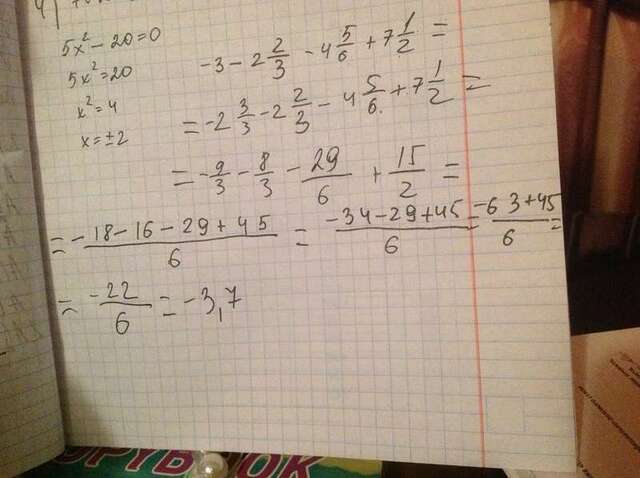 4)
5x² - 20 = 0
5x² = 20
x² = 4
x = ±2
-3 - 2 2/3 - 4 5/6 + 7 1/2 =
= -2 3/3 - 2 2/3 - 4 5/6. + 7 1/2 =
= -9/3 - 8/3 - 29/6 + 15/2 =
= -18-16-29+45/6 = -34-29+45/6 = -63+45/6 =
= -22/6 = -3,7
OPYBOOK